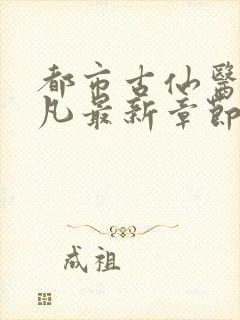 都市古仙醫
凡最新章節
成祖